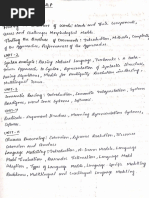 Finding the Structure of Words: Words and Their Components,
Issues and Challenges, Morphological Models
Finding the Structure of Documents: Introduction, Methods, Complexity
of the Approaches, Performances of the Approaches
UNIT-2
Syntax Analysis: Parsing Natural Language, Treebanks: A Data-
driven Approach to Syntax, Representation of Syntactic Structure,
Parsing Algorithms, Models for Ambiguity Resolution in
Parsing, Multilingual Issues
UNIT-3
Semantic Parsing: Introduction, Semantic Interpretation, System
Paradigms, Word Sense Systems, Software.
UNIT-4
Predicate-Argument Structure, Meaning Representation Systems,
Software.
UNIT-5
Discourse Processing: Cohesion, Reference Resolution, Discourse
Cohesion and Structure
Language Modeling: Introduction, N-Gram Models, Language
Model Evaluation, Parameter Estimation, Language Model
Adaption, Types of Language Models, Language Specific Modeling
Problems, Multilingual and Crosslingual Language Modeling